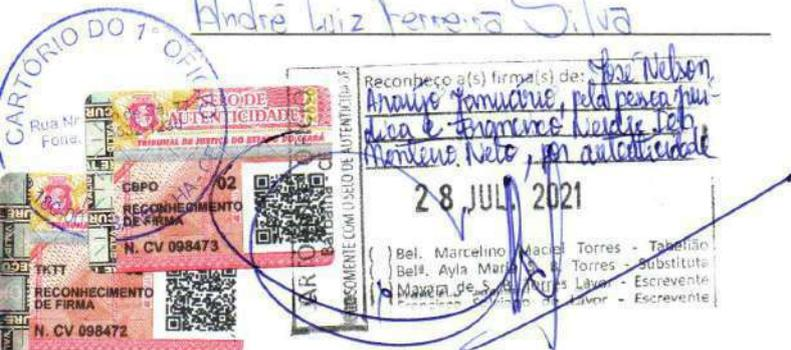 André Luiz Ferreira Silva
CARTÓRIO DO 1º OFÍ
Rua Nr
Fone.
SELO DE
AUTENTICIDADE
TRIBUNAL DE JUSTIÇA DO ESTADO DO CEARÁ
CBPO 02
RECONHECIMENTO
DE FIRMA
N. CV 098473
TKTT
RECONHECIMENTO
DE FIRMA
N. CV 098472
SOMENTE COM O SELO DE AUTENTICIDADE
Barbalha - CE
Reconheço a(s) firma(s) de: José Nelson
Araujo Januário, pela pessoa jurí-
dica e
Monteiro Neto, por autenticidade
28 JUL. 2021
( ) Bel. Marcelino Maciel Torres - Tabelião
( ) Belª. Ayla Maria Torres - Substituta
( ) Mayara de S. B. Torres Lavor - Escrevente
de Lavor - Escrevente